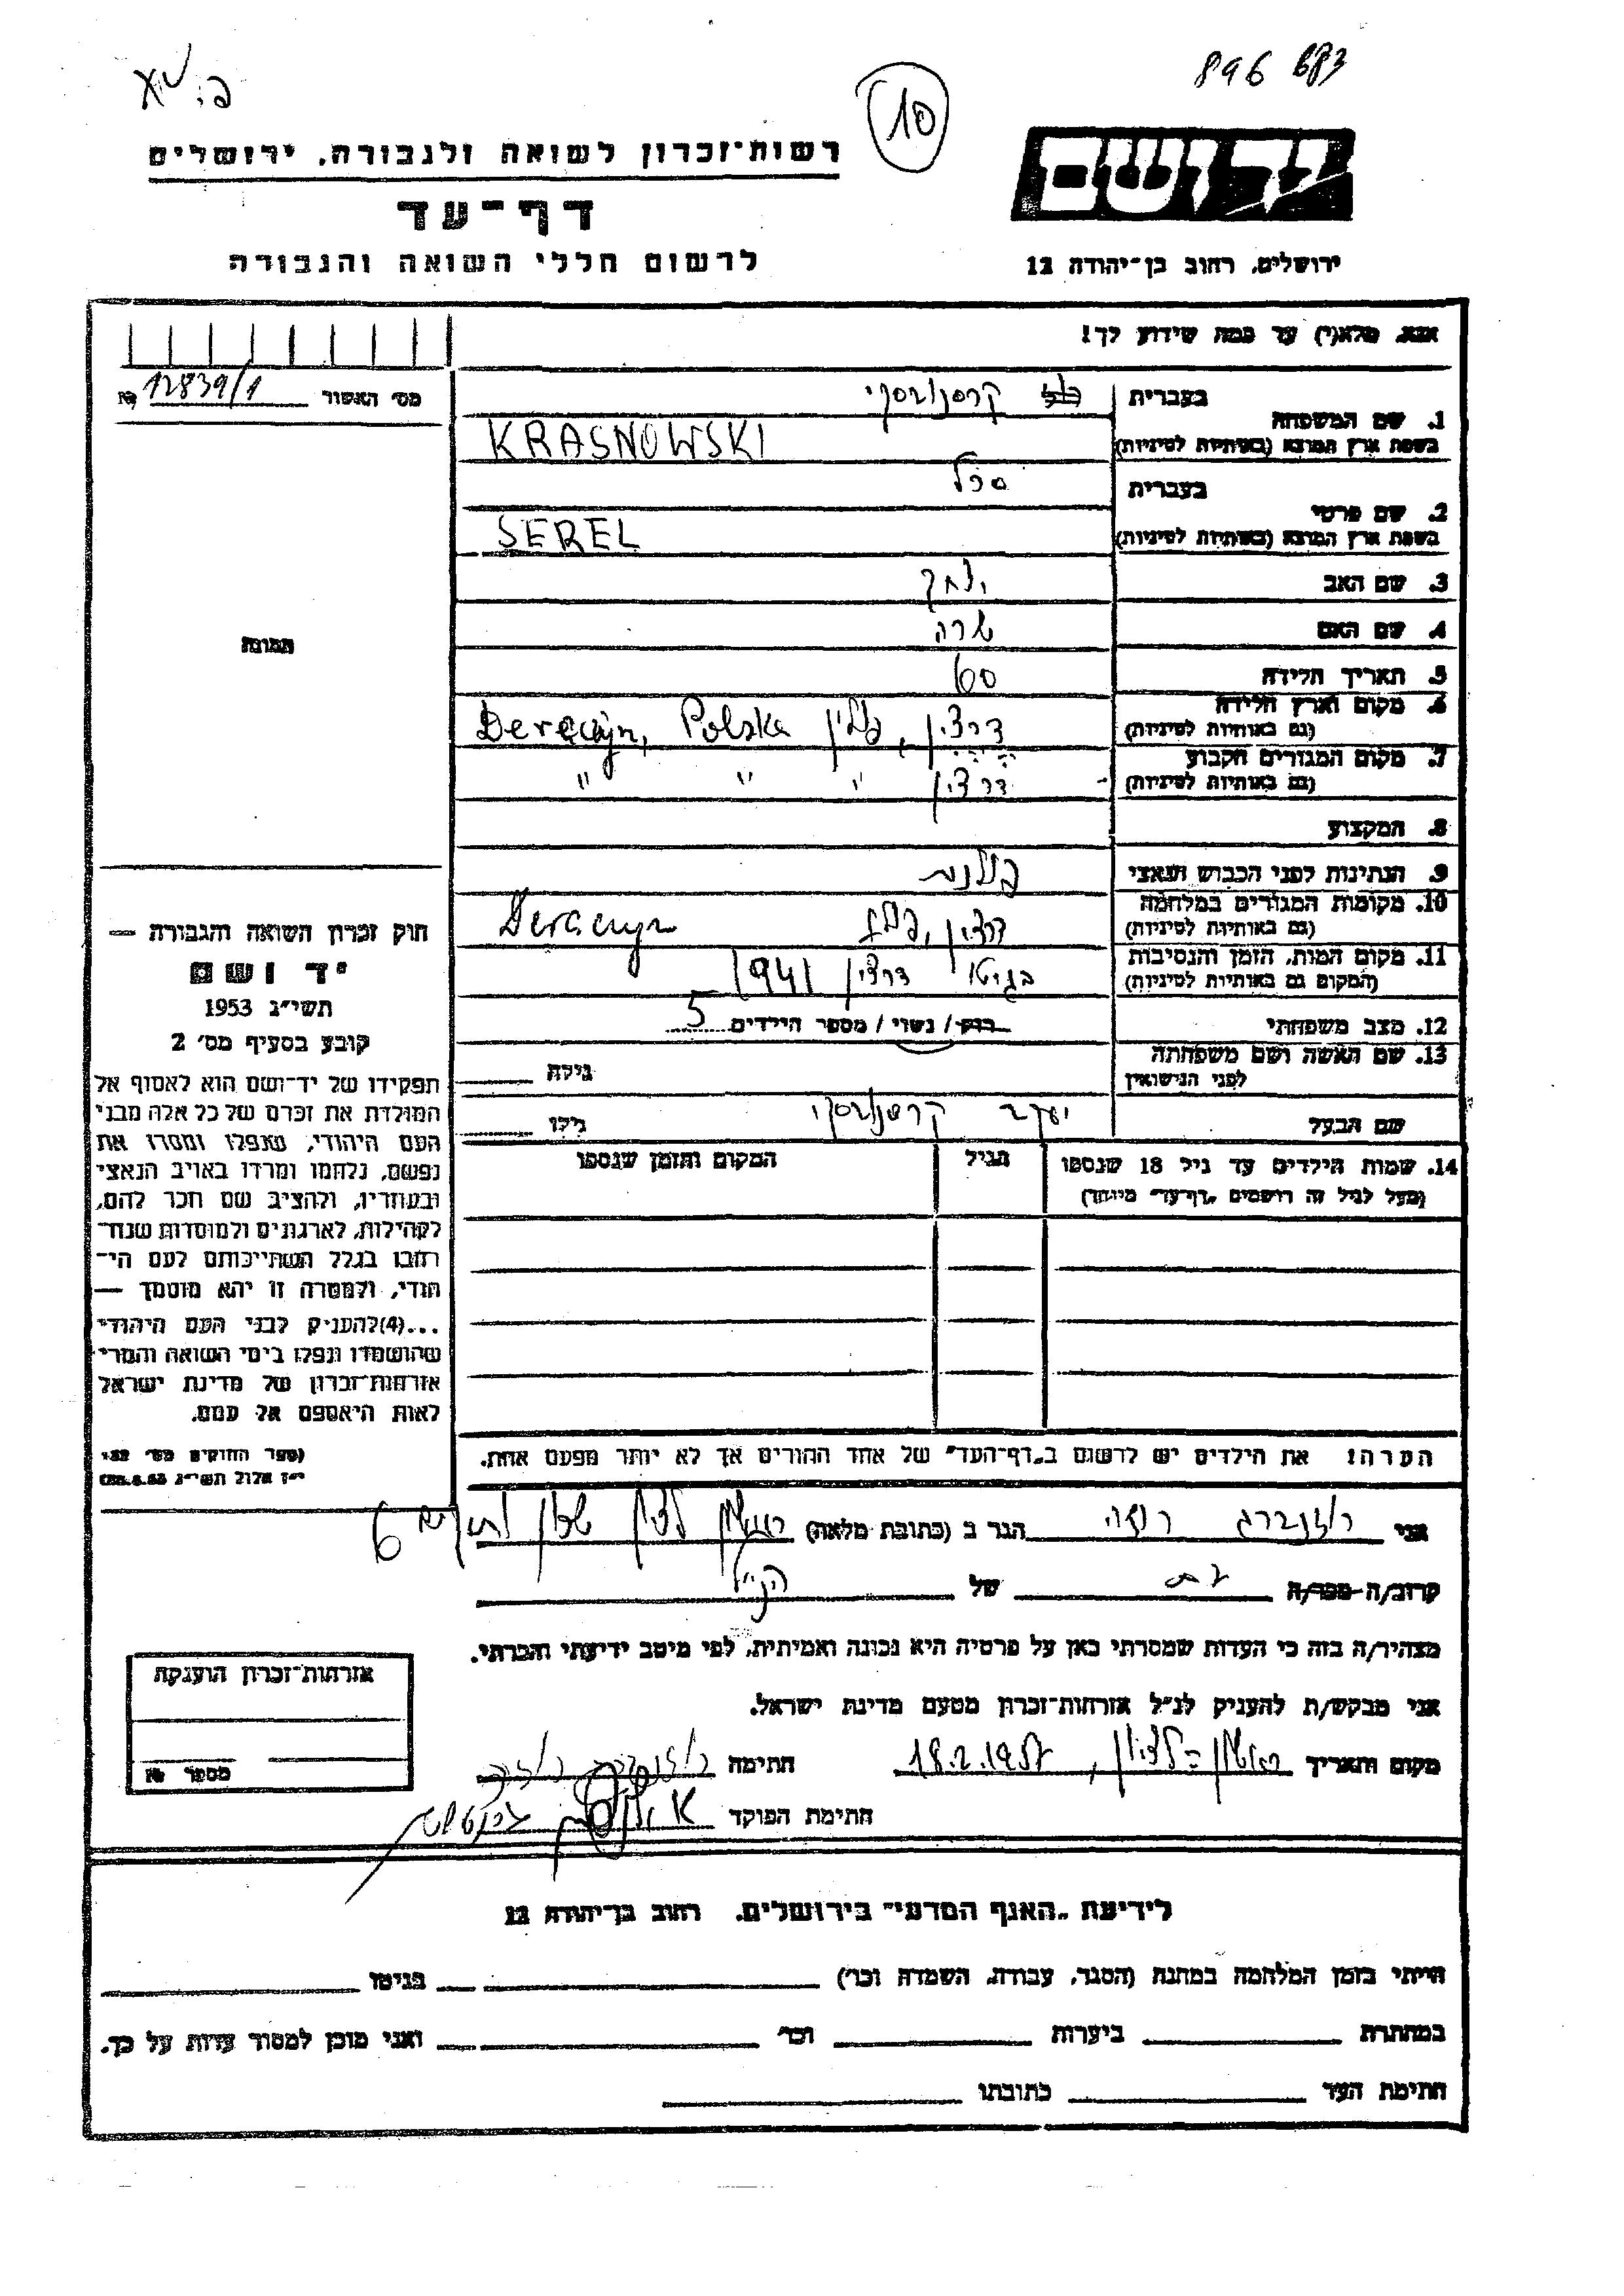 896 683
10
יד ושם
רשות־זכרון לשואה ולגבורה, ירושלים
דף־עד
לרשום חללי השואה והגבורה
ירושלים, רחוב בן־יהודה 12
אנא, מלא(י) עד כמה שידוע לך!
מס׳ האשור 12839/1 №
1. שם המשפחה
בעברית קרסנובסקי
בשפת ארץ המוצא (באותיות לטיניות) KRASNOWSKI
2. שם פרטי
בעברית סרל
בשפת ארץ המוצא (באותיות לטיניות) SEREL
3. שם האב
4. שם האם שרה
5. תאריך הלידה 60
6. מקום וארץ הלידה
(גם באותיות לטיניות) דרצין, פולין Dereczyn, Polska
7. מקום המגורים הקבוע
(גם באותיות לטיניות) דרצין " " "
8. המקצוע
9. הנתינות לפני הכבוש הנאצי פולנית
10. מקומות המגורים במלחמה
(גם באותיות לטיניות) דרצין, פולין Dereczyn
11. מקום המות, הזמן והנסיבות
(המקום גם באותיות לטיניות) בגיטו דרצין 1941
12. מצב משפחתי רווק/ נשוי/ מספר הילדים 5
13. שם האשה ושם משפחתה
לפני הנישואין גילה
שם הבעל יעקב קרסנובסקי גילו
14. שמות הילדים עד גיל 18 שנספו
(מעל לגיל זה רושמים „דף־עד״ מיוחד)
הגיל
המקום והזמן שנספו
הערה: את הילדים יש לרשום ב„דף־העד״ של אחד ההורים אך לא יותר מפעם אחת.
תמונה
חוק זכרון השואה והגבורה —
יד ושם
תשי״ג 1953
קובע בסעיף מס׳ 2
תפקידו של יד־ושם הוא לאסוף אל
המולדת את זכרם של כל אלה מבני
העם היהודי, שנפלו ומסרו את
נפשם, נלחמו ומרדו באויב הנאצי
ובעוזריו, ולהציב שם וזכר להם,
לקהילות, לארגונים ולמוסדות שנח־
רבו בגלל השתייכותם לעם הי־
הודי, ולמטרה זו יהא מוסמך —
...(4)להעניק לבני העם היהודי
שהושמדו ונפלו בימי השואה והמרי
אזרחות־זכרון של מדינת ישראל
לאות היאספם אל עמם.
(ספר החוקים מס׳ 132
י״ז אלול תשי״ג 28.8.53)
אני רוזנברג רוזה הגר ב (כתובת מלאה) ראשון לציון שכון 6
קרוב/ה מכר/ה בת של הנ״ל
מצהיר/ה בזה כי העדות שמסרתי כאן על פרטיה היא נכונה ואמיתית, לפי מיטב ידיעתי והכרתי.
אני מבקש/ת להעניק לנ״ל אזרחות־זכרון מטעם מדינת ישראל.
מקום ותאריך ראשון-לציון, 18.2.1957 חתימה
חתימת הפוקד
אזרחות־זכרון הוענקה
מספר №
לידיעת „האגף המדעי״ בירושלים, רחוב בן־יהודה 12
הייתי בזמן המלחמה במחנה (הסגר, עבודה, השמדה וכו׳) בגיטו
במחתרת ביערות וכו׳ ואני מוכן למסור עדות על כך.
חתימת העד כתובתו